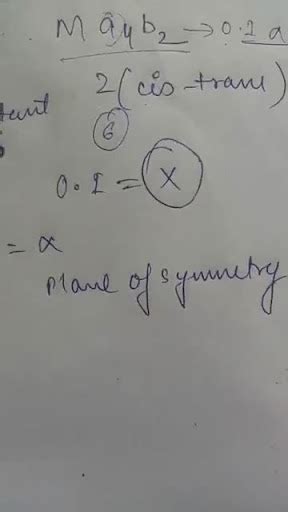 Ma4b2 → 0.1 a
2 (cis-trans)
6
0.1 = X
= α
Plane of symmetry